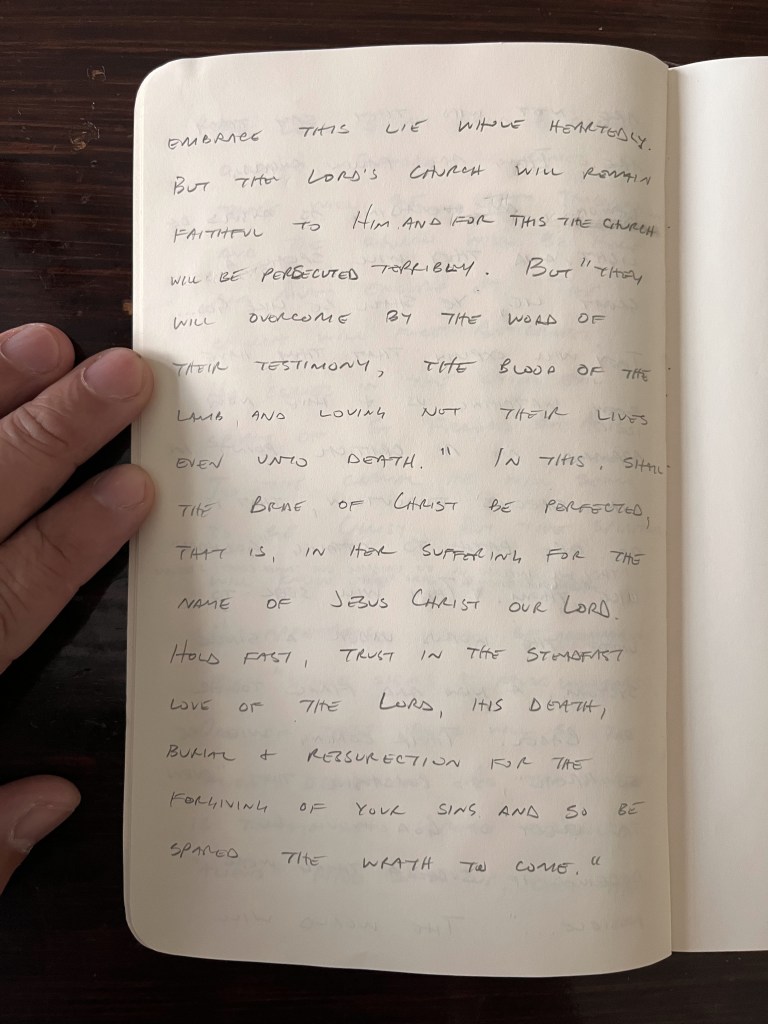 EMBRACE THIS LIE WHOLE HEARTEDLY.
BUT THE LORD'S CHURCH WILL REMAIN
FAITHFUL TO HIM AND FOR THIS THE CHURCH
WILL BE PERSECUTED TERRIBLY. BUT "THEY
WILL OVERCOME BY THE WORD OF
THEIR TESTIMONY, THE BLOOD OF THE
LAMB AND LOVING NOT THEIR LIVES
EVEN UNTO DEATH." IN THIS, SHALL
THE BRIDE OF CHRIST BE PERFECTED,
THAT IS, IN HER SUFFERING FOR THE
NAME OF JESUS CHRIST OUR LORD.
HOLD FAST, TRUST IN THE STEADFAST
LOVE OF THE LORD, HIS DEATH,
BURIAL + RESSURECTION FOR THE
FORGIVING OF YOUR SINS AND SO BE
SPARED THE WRATH TO COME."